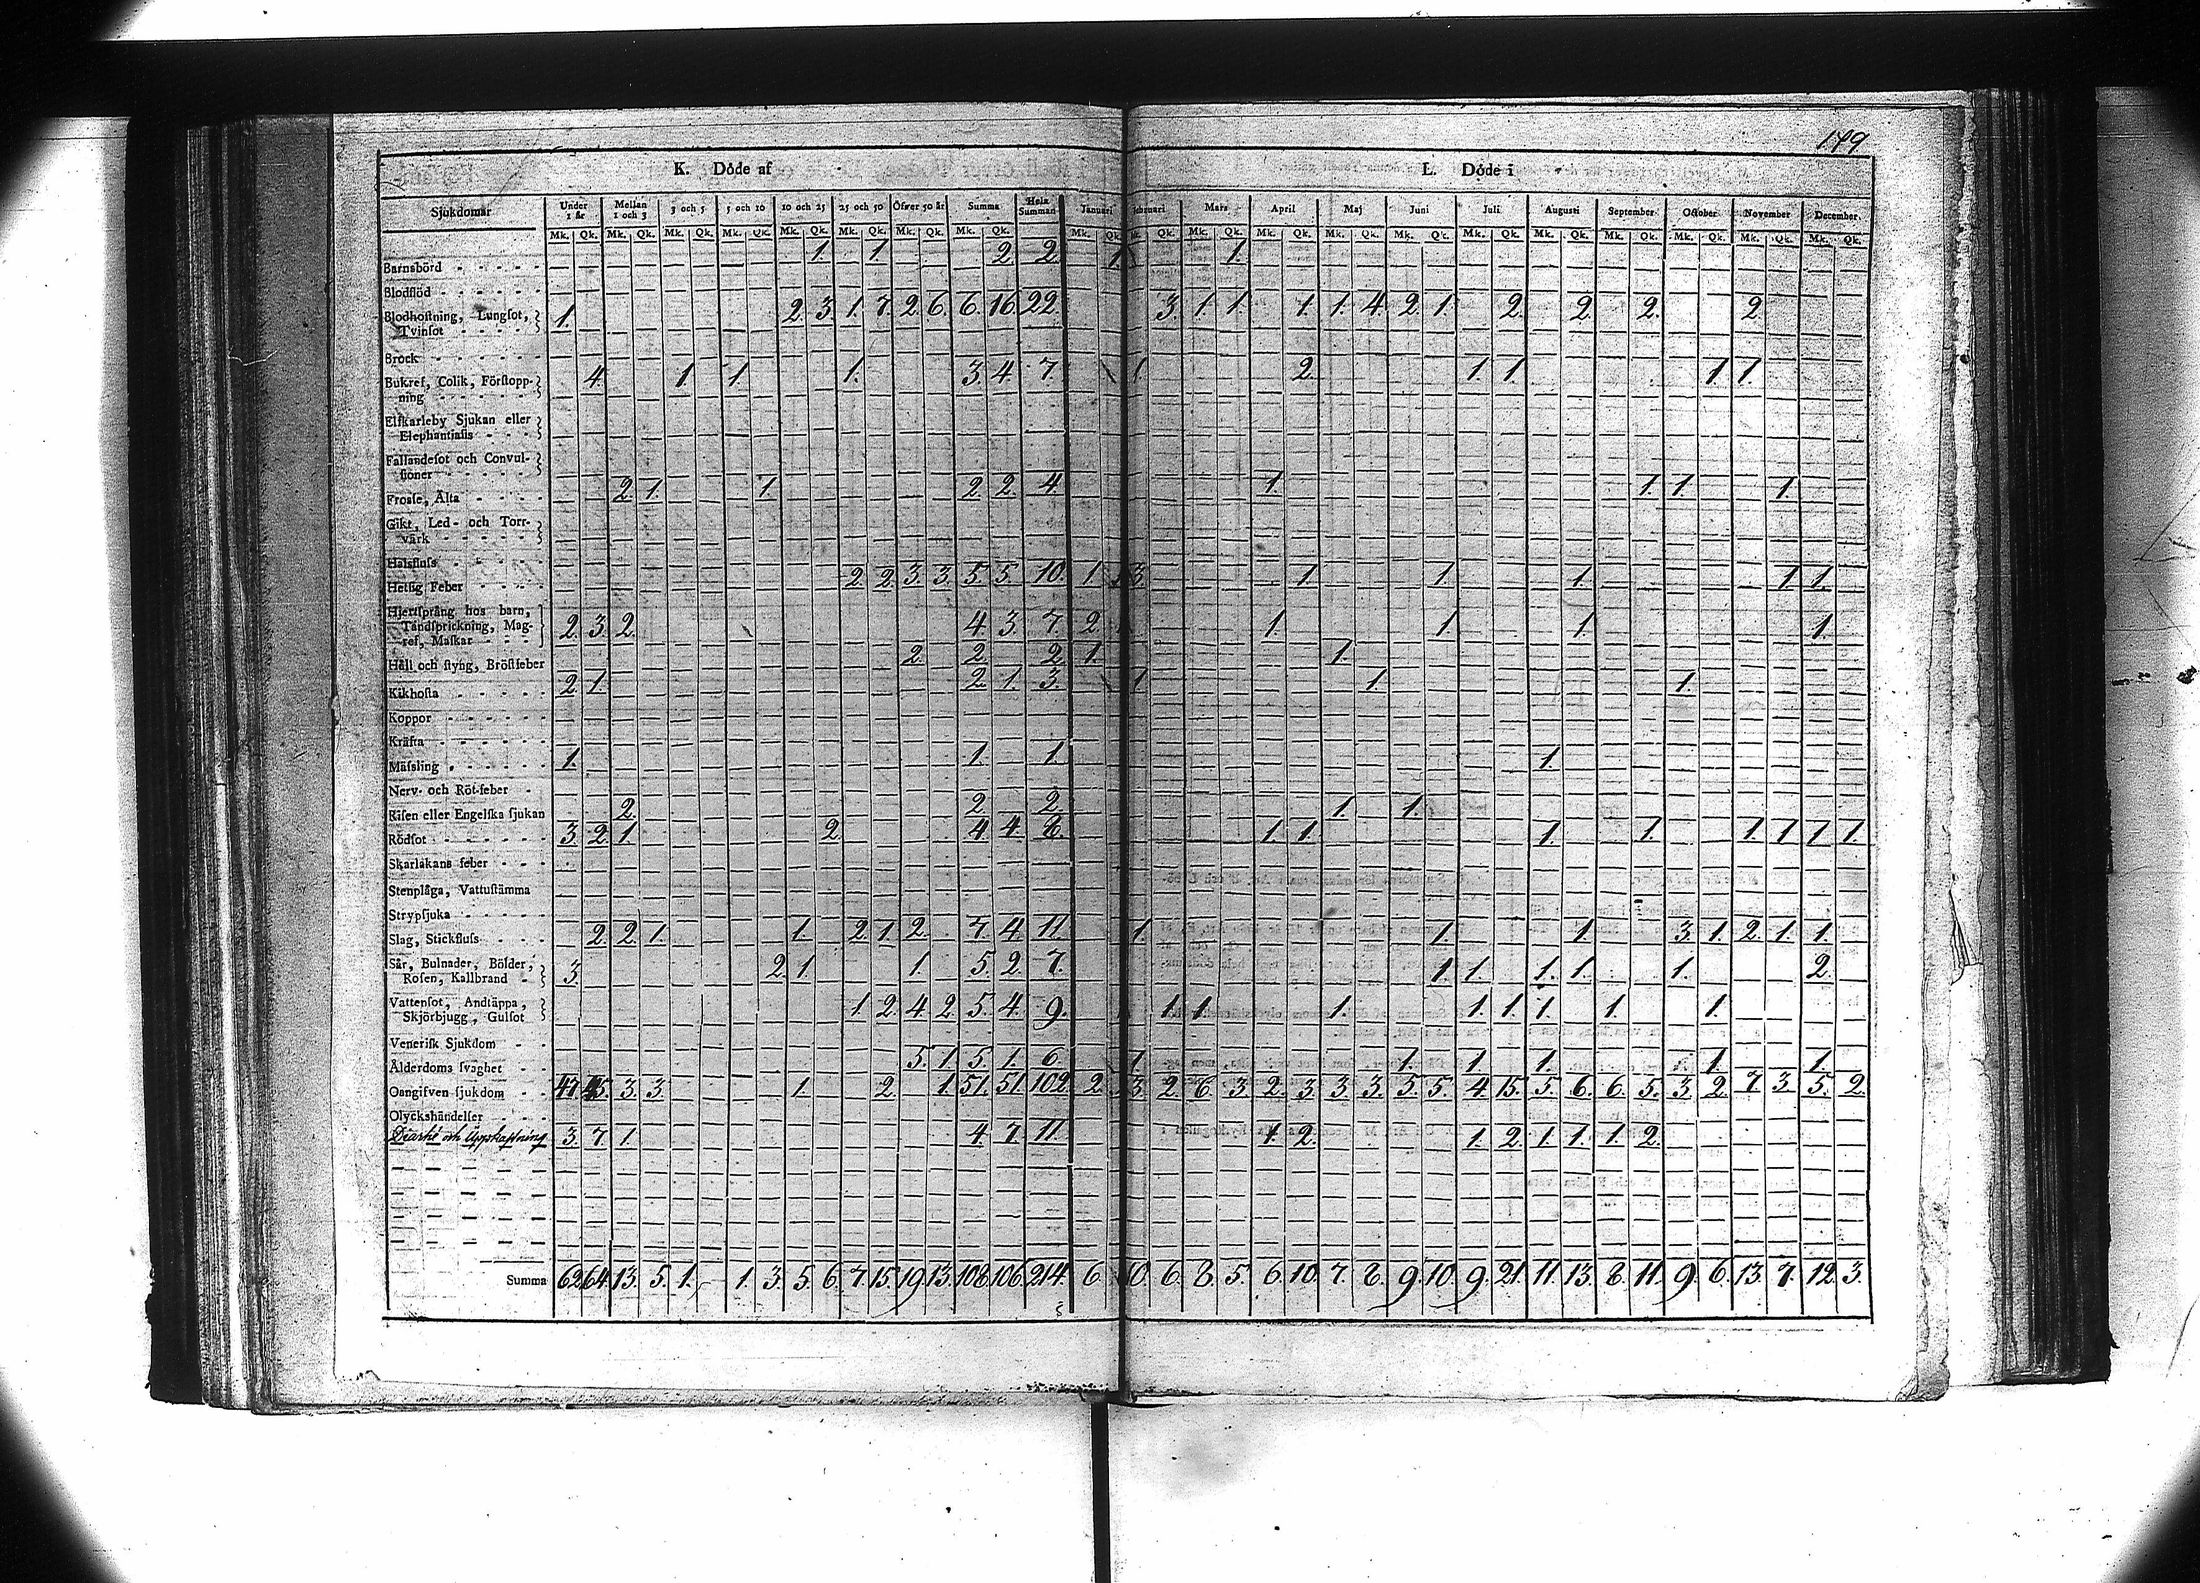 149
K. Döde af
L. Döde i
Sjukdomar Under 1 år Mellan 1 och 3 3 och 5 5 och 10 10 och 25 25 och 50 Öfver 50 år Summa Hela Summan Januari Februari Mars April Maj Juni Juli Augusti September October November December.
Mk. Qk. Mk. Qk. Mk. Qk. Mk. Qk. Mk. Qk. Mk. Qk. Mk. Qk. Mk. Qk. Mk. Qk. Mk. Qk. Mk. Qk. Mk. Qk. Mk. Qk. Mk. Qk. Mk. Qk. Mk. Qk. Mk. Qk. Mk. Qk. Mk. Qk. Mk. Qk.
Barnsbörd 1. 1. 2. 2. 1. 1.
Blodflöd
Blodhoſtning, Lungſot, Tvinſot 1. 2. 3. 1. 7. 2. 6. 6. 16. 22. 3. 1. 1. 1. 1. 4. 2. 1. 2. 2. 2. 2.
Bråck
Bukref, Colik, Förſtoppning 4. 1. 1. 1. 3. 4. 7. 1. 2. 1. 1. 1. 1.
Elfkarleby Sjukan eller Elephantiaſis
Fallandeſot och Convulſioner
Froſſe, Älta 2. 1. 1. 2. 2. 4. 1. 1. 1. 1.
Gikt, Led- och Torrvärk
Halsfluſs
Hetſig Feber 2. 2. 3. 3. 5. 5. 10. 1. 3. 1. 1. 1. 1. 1.
Hjertſprång hos barn, Tandſprickning, Magref, Maſkar 2. 3. 2. 4. 3. 7. 2. 1. 1. 1. 1.
Håll och ſtyng, Bröſtfeber 2. 2. 2. 1. 1.
Kikhoſta 2. 1. 2. 1. 3. 1. 1. 1.
Koppor
Kräfta
Mäſsling 1. 1. 1. 1.
Nerv- och Röt-feber
Riſen eller Engelſka ſjukan 2. 2. 2. 1. 1.
Rödſot 3. 2. 1. 2. 4. 4. 8. 1. 1. 1. 1. 1. 1. 1. 1.
Skarlakans feber
Stenplåga, Vattuſtämma
Strypſjuka
Slag, Stickfluſs 2. 2. 1. 1. 2. 1. 2. 7. 4. 11. 1. 1. 1. 3. 1. 2. 1. 1.
Sår, Bulnader, Bölder, Roſen, Kallbrand 3. 2. 1. 1. 5. 2. 7. 1. 1. 1. 1. 1. 2.
Vattenſot, Andtäppa, Skjörbjugg, Gulſot 1. 2. 4. 2. 5. 4. 9. 1. 1. 1. 1. 1. 1. 1. 1.
Veneriſk Sjukdom
Ålderdoms ſvaghet 5. 1. 5. 1. 6. 1. 1. 1. 1. 1. 1.
Oangifven ſjukdom 47. 45. 3. 3. 1. 2. 1. 51. 51. 102. 2. 3. 2. 6. 3. 2. 3. 3. 3. 5. 5. 4. 15. 5. 6. 6. 5. 3. 2. 7. 3. 5. 2.
Olyckshändelſer
Diarhé och Uppkaſtning 3. 7. 1. 4. 7. 11. 1. 2. 1. 2. 1. 1. 1. 2.
Summa 62. 64. 13. 5. 1. 1. 3. 5. 6. 7. 15. 19. 13. 108. 106. 214. 6. 10. 6. 8. 5. 6. 10. 7. 8. 9. 10. 9. 21. 11. 13. 8. 11. 9. 6. 13. 7. 12. 3.